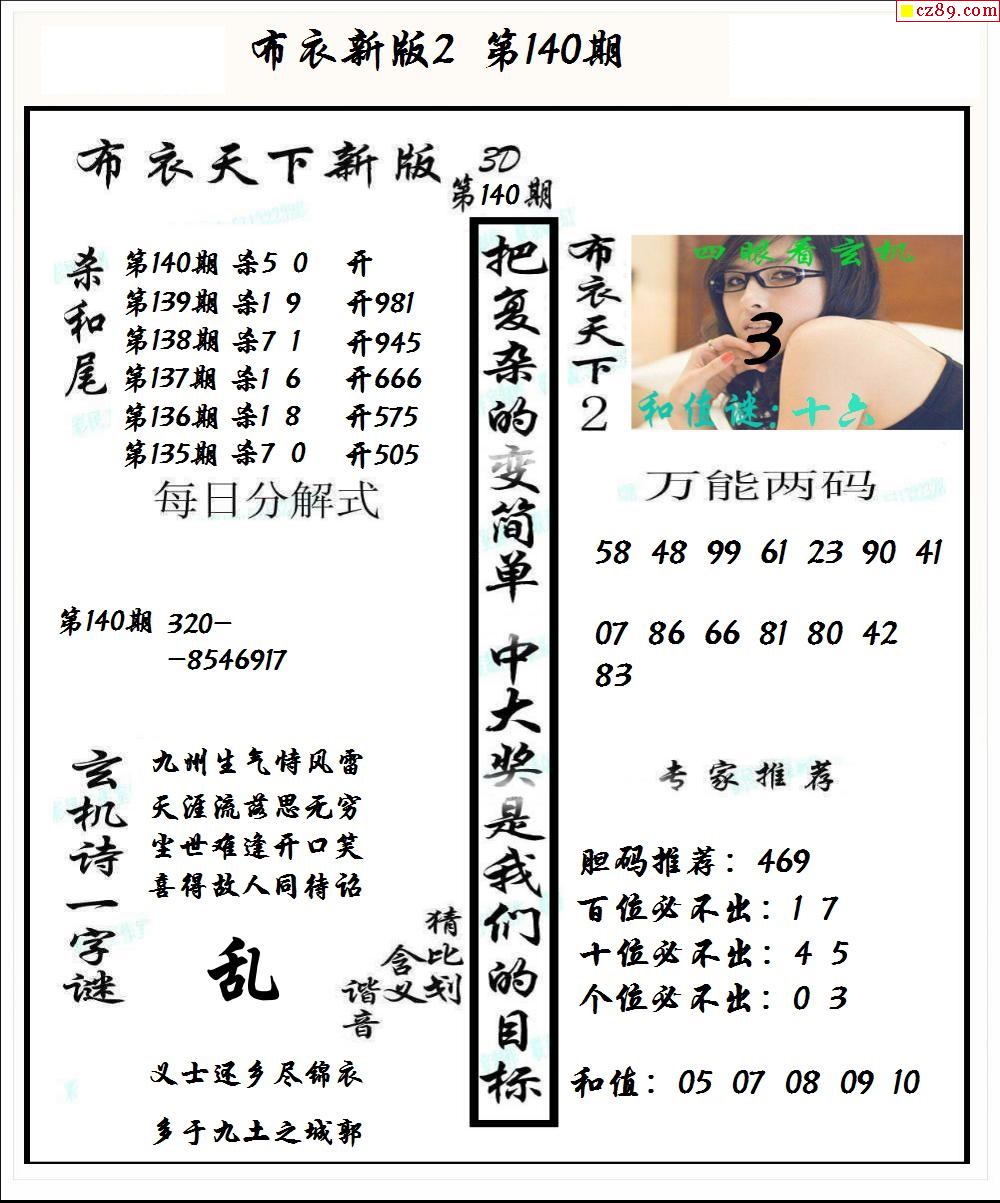 cz89.com
布衣新版2 第140期
布衣天下新版 3D
第140期
杀和尾
第140期 杀5 0 开
第139期 杀1 9 开981
第138期 杀7 1 开945
第137期 杀1 6 开666
第136期 杀1 8 开575
第135期 杀7 0 开505
每日分解式
第140期 320-
-8546917
玄机诗一字谜
九州生气恃风雷
天涯流落思无穷
尘世难逢开口笑
喜得故人同待诏
乱
猜比划
含义
谐音
义士还乡尽锦衣
多于九土之城郭
把复杂的变简单 中大奖是我们的目标
布衣天下2
四眼看玄机
3
和值谜:十六
万能两码
58 48 99 61 23 90 41
07 86 66 81 80 42
83
专家推荐
胆码推荐：469
百位必不出：1 7
十位必不出：4 5
个位必不出：0 3
和值：05 07 08 09 10